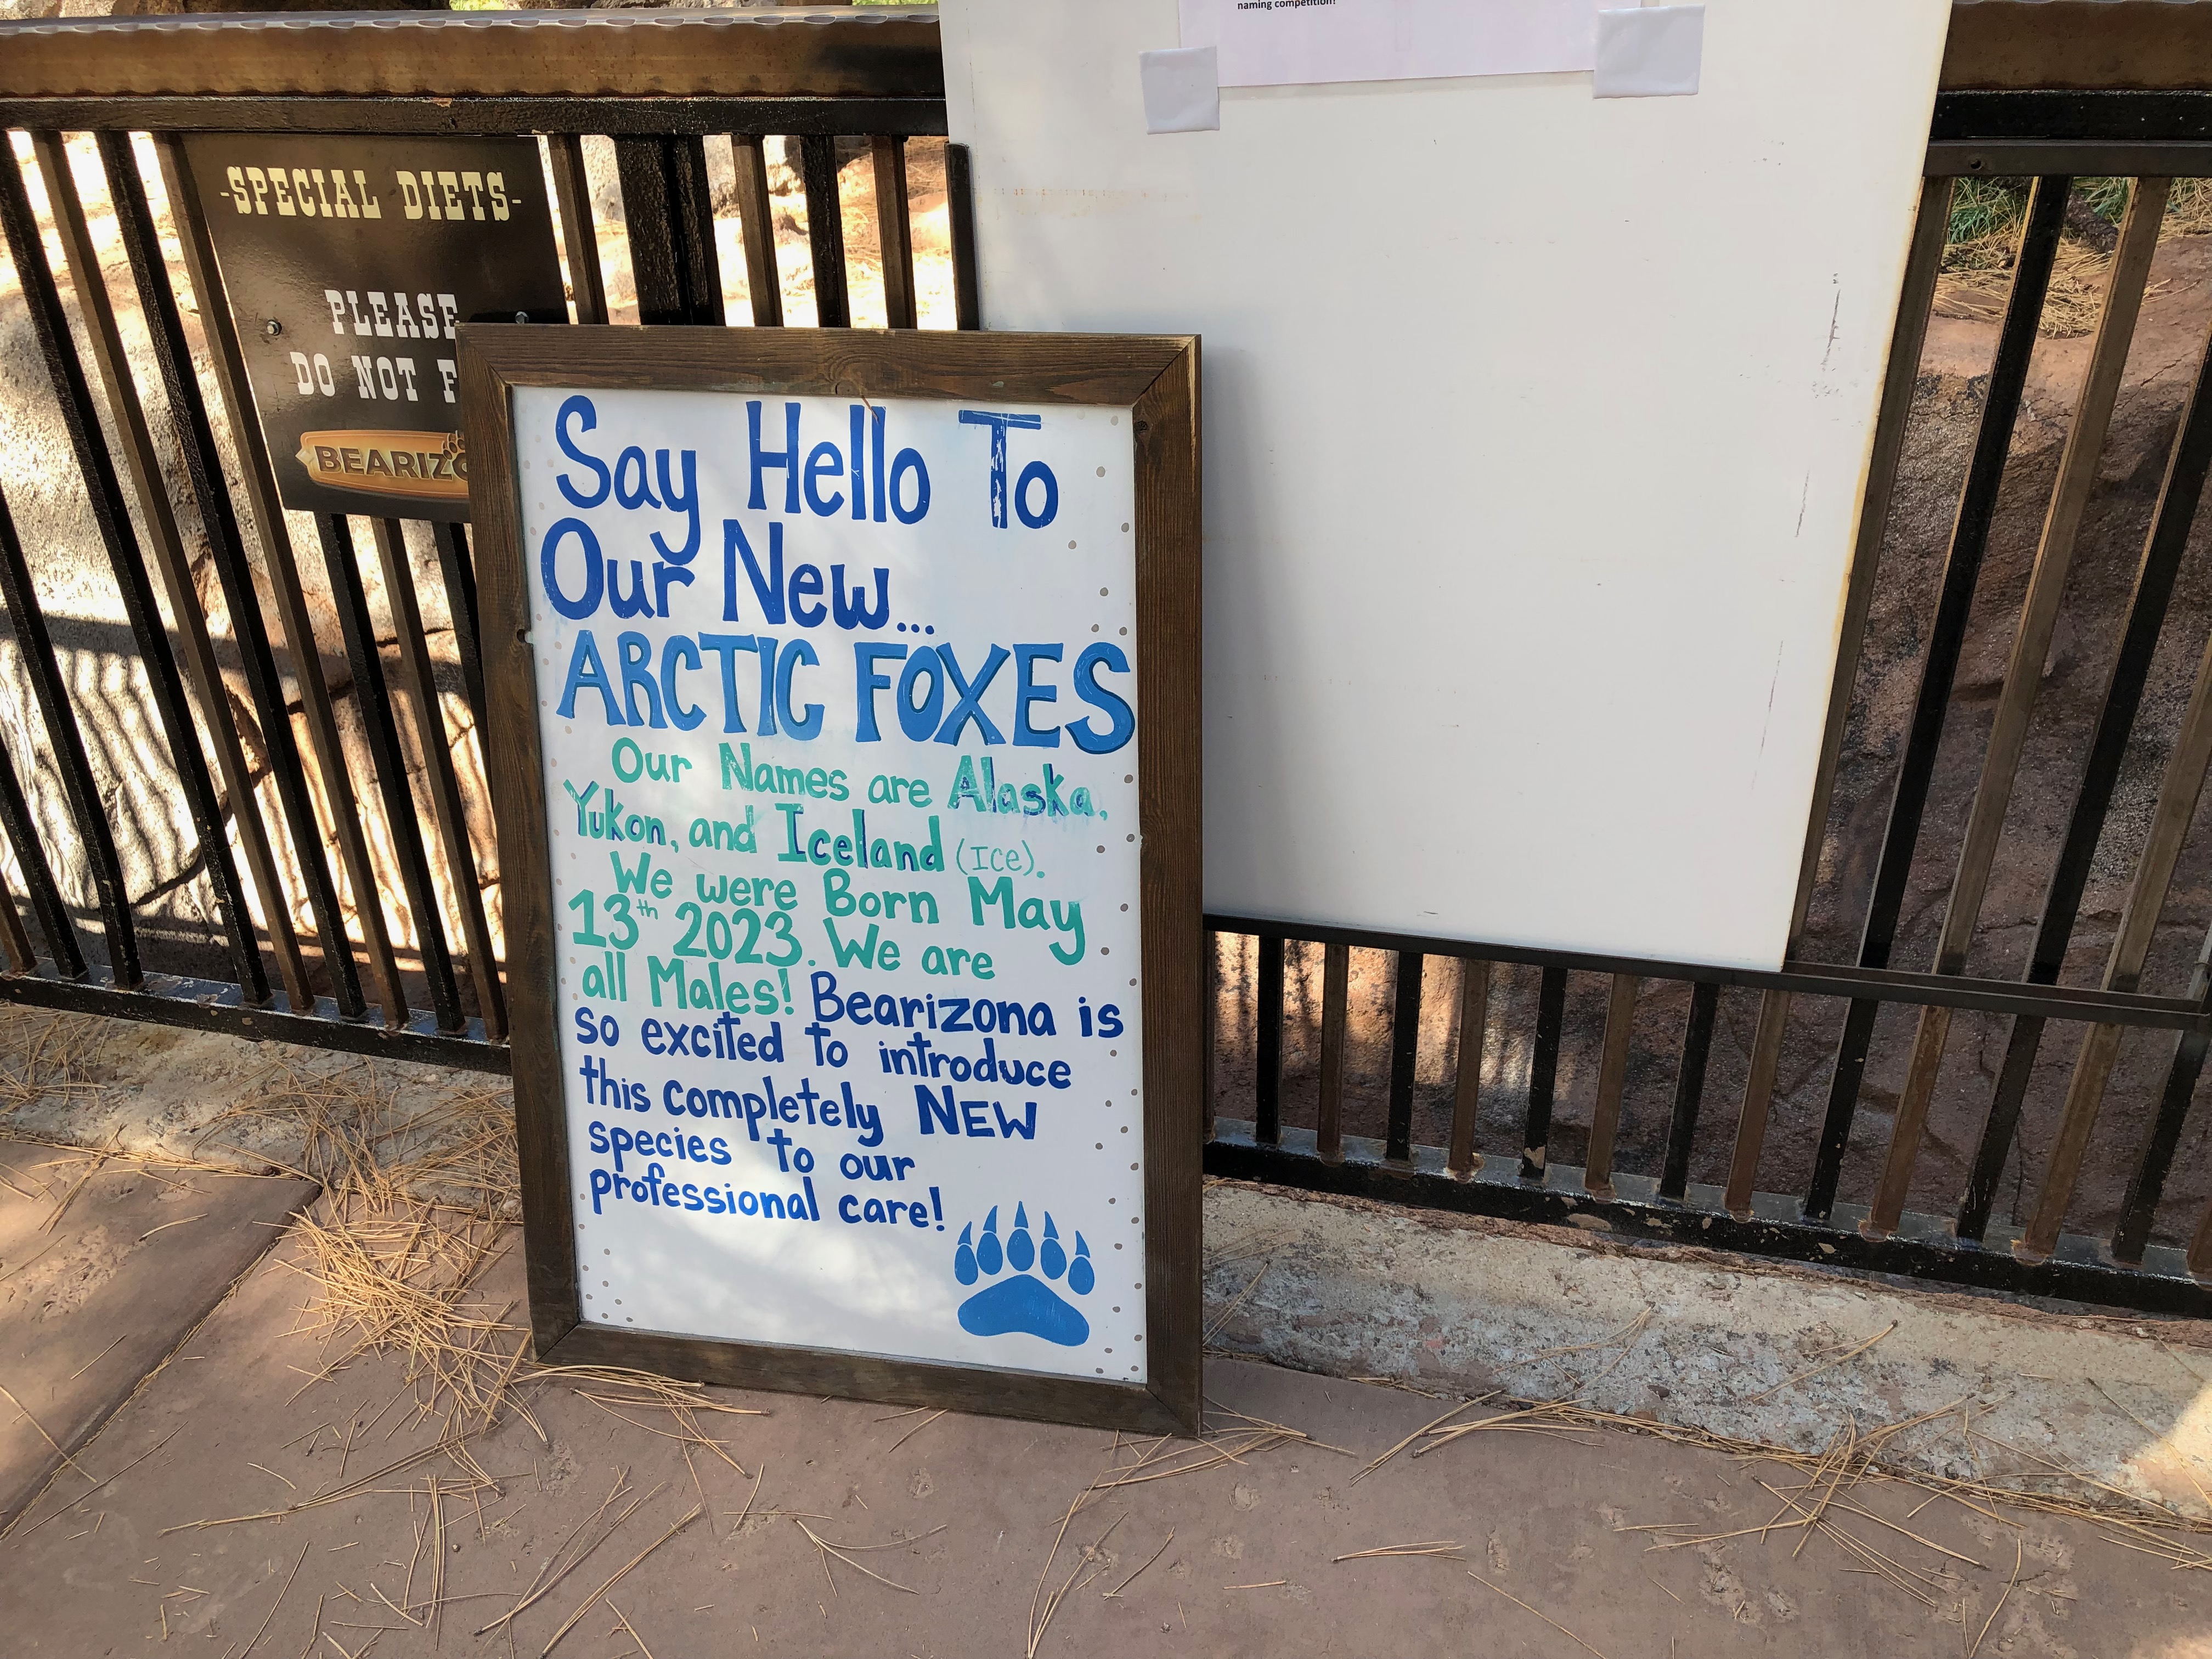 naming competition!
-SPECIAL DIETS-
PLEASE
DO NOT
BEARIZO
Say Hello To
Our New...
ARCTIC FOXES
Our Names are Alaska,
Yukon, and Iceland (Ice).
We were Born May
13th 2023. We are
all Males! Bearizona is
so excited to introduce
this completely NEW
species to our
professional care!